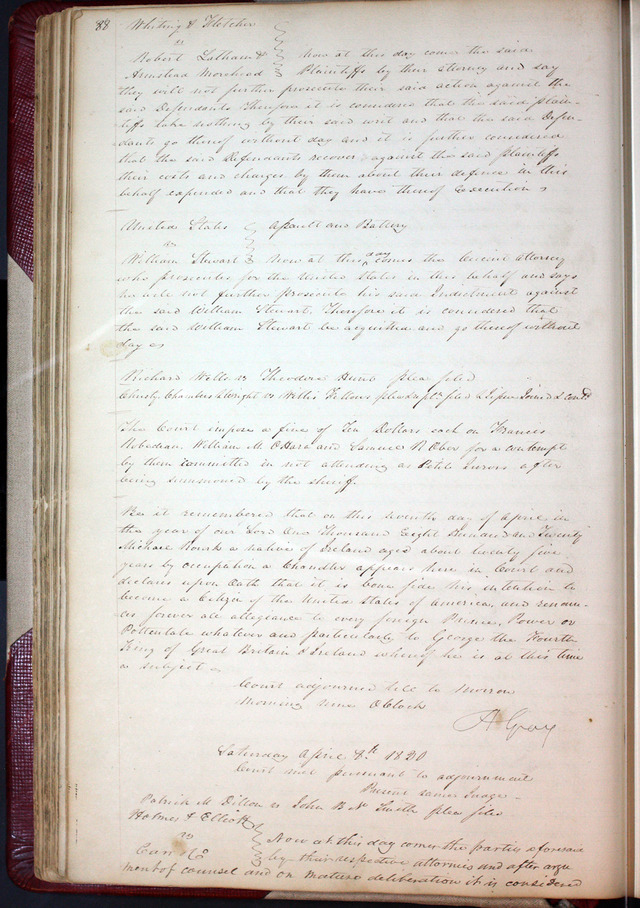 88
Whiting & Fletcher
vs
Robert Latham & Now at this day come the said
Armstead Morehead Plaintiffs by their attorney and say
they will not further prosecute their said action against the
said Defendants Therefore it is considered that the said plain-
tiffs take nothing by their said writ and that the said Defen-
dants go thereof without day and it is further considered
that the said Defendants recover against the said plaintiffs
their costs and charges by them about their defence in this
behalf expended and that they have thereof Execution
United States Assault and Battery
vs
William Stewart Now at this day comes the Circuit attorney
who prosecutes for the United States in this behalf and says
he will not further prosecute his said Indictment against
the said William Stewart. Therefore it is considered that
the said William Stewart be acquitted and go thereof without
day
Richard Wells vs Theodore Hunt plea filed
Christy Chambers & Wright vs Willis Fellows plea & rept filed & Issue Joined & contd
The Court impose a fine of Ten Dollars each on Francis
Robedeau, William M. OHara and Samuel R Ober for a contempt
by them committed in not attending as Petit Jurors after
being summoned by the sheriff.
Be it remembered that on this seventh day of April in
the year of our Lord One Thousand Eight Hundred and Twenty
Michael Rourk a native of Ireland aged about twenty five
years by occupation a Chandler appears here in Court and
declares upon Oath that it is bona fide his intention to
become a Citizen of the United States of America, and renoun-
ces forever all allegeance to every foreign Prince, Power or
Pottentate whatever and particularly to George the Fourth
King of Great Britain & Ireland whereof he is at this time
a subject
Court adjourned till to morrow
morning nine OClock
A Gray
Saturday April 8th 1820
Court met pursuant to adjournment
Present same Judge
Patrick M Dillon vs John B N Smith plea filed
Holmes & Elliott
vs Now at this day comes the parties aforesaid
Carr & Co by their respective attornies and after argu
ment of counsel and on mature deliberation it is considered